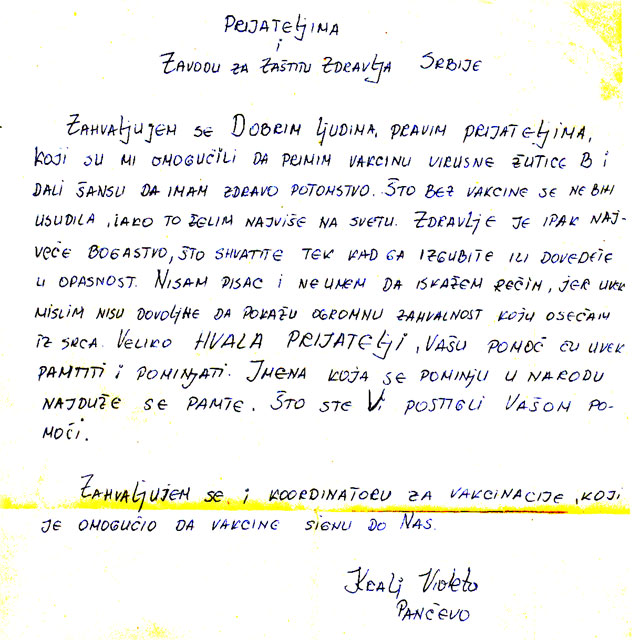 PRIJATELJIMA
i
ZAVODU ZA ZAŠTITU ZDRAVLJA SRBIJE
ZAHVALJUJEM SE DOBRIM LJUDIMA, PRAVIM PRIJATELJIMA,
KOJI SU MI OMOGUĆILI DA PRIMIM VAKCINU VIRUSNE ŽUTICE B I
DALI ŠANSU DA IMAM ZDRAVO POTOMSTVO. ŠTO BEZ VAKCINE SE NE BIH
USUDILA, IAKO TO ŽELIM NAJVIŠE NA SVETU. ZDRAVLJE JE IPAK NAJ-
VEĆE BOGASTVO, ŠTO SHVATITE TEK KAD GA IZGUBITE ILI DOVEDETE
U OPASNOST. NISAM PISAC I NE UMEM DA ISKAŽEM REČIM, JER UVEK
MISLIM NISU DOVOLJNE DA POKAŽU OGROMNU ZAHVALNOST KOJU OSEĆAM
IZ SRCA. VELIKO HVALA PRIJATELJI, VAŠU POMOĆ ĆU UVEK
PAMTITI I POMINJATI. IMENA KOJA SE POMINJU U NARODU
NAJDUŽE SE PAMTE. ŠTO STE VI POSTIGLI VAŠOM PO-
MOĆI.
ZAHVALJUJEM SE I KOORDINATORU ZA VAKCINACIJE, KOJI
JE OMOGUĆIO DA VAKCINE STGNU DO NAS.
Kralj Violeta
PANČEVO